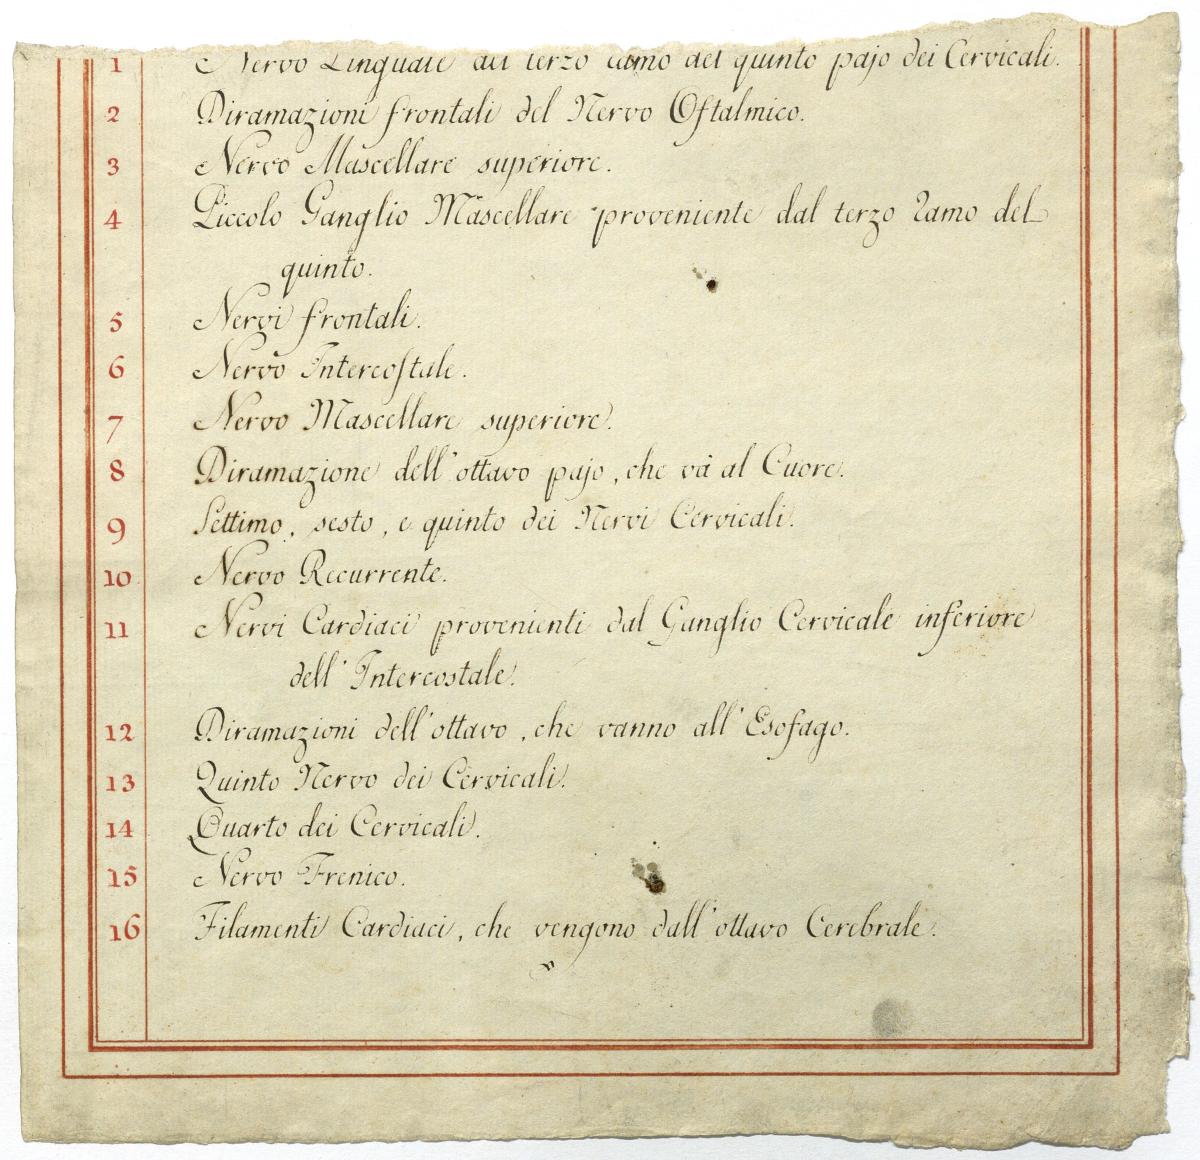 1 Nervo Linguale del terzo ramo del quinto pajo dei Cervicali.
2 Diramazioni frontali del Nervo Oftalmico.
3 Nervo Mascellare superiore.
4 Piccolo Ganglio Mascellare proveniente dal terzo Ramo del
quinto.
5 Nervi frontali.
6 Nervo Intercostale.
7 Nervo Mascellare superiore.
8 Diramazione dell'ottavo pajo, che và al Cuore.
9 Settimo, sesto, e quinto dei Nervi Cervicali.
10 Nervo Recurrente.
11 Nervi Cardiaci provenienti dal Ganglio Cervicale inferiore
dell'Intercostale.
12 Diramazioni dell'ottavo, che vanno all'Esofago.
13 Quinto Nervo dei Cervicali.
14 Quarto dei Cervicali.
15 Nervo Frenico.
16 Filamenti Cardiaci, che vengono dall'ottavo Cerebrale.